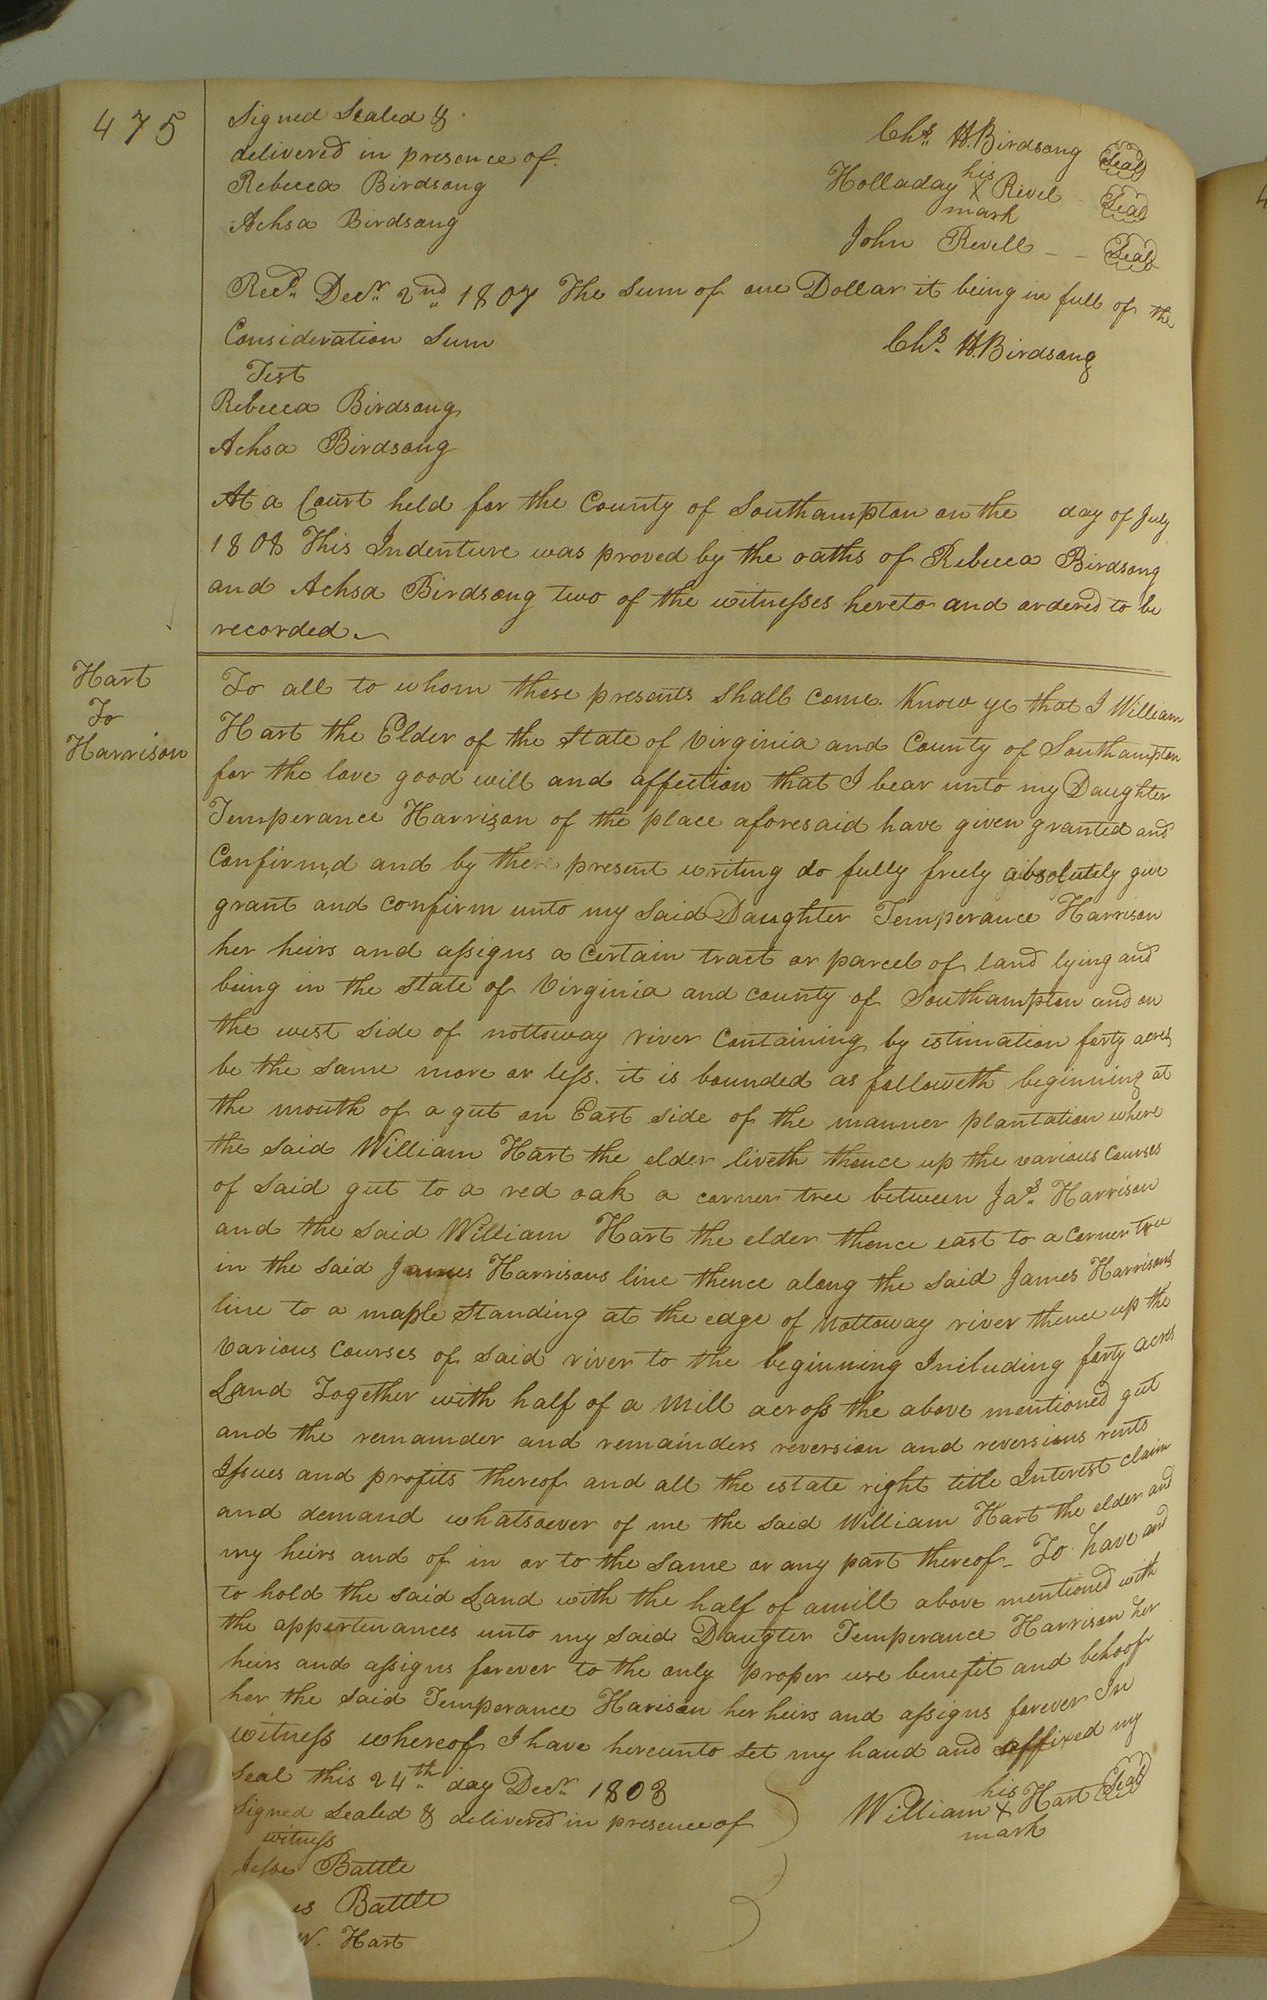 475
Signed Sealed &
delivered in presence of
Rebecca Birdsong
Achsa Birdsong
Chs. H. Birdsong Seal
his
Holladay X Revel Seal
mark
John Revell - - Seal
Recd. Decr. 2nd 1807 The Sum of one Dollar it being in full of the
Consideration Sum
Chs. H. Birdsong
Test
Rebecca Birdsong
Achsa Birdsong
At a Court held for the County of Southampton on the day of July
1808 This Indenture was proved by the oaths of Rebecca Birdsong
and Achsa Birdsong two of the witnesses hereto and ordered to be
recorded.
Hart
To
Harrison
To all to whom these presents shall come. Know ye that I William
Hart the Elder of the State of Virginia and County of Southampton
for the love good will and affection that I bear unto my Daughter
Temperance Harrison of the place aforesaid have given granted and
Confirm,d and by these present writing do fully freely absolutely give
grant and confirm unto my Said Daughter Temperance Harrison
her heirs and assigns a Certain tract or parcel of land lying and
being in the State of Virginia and county of Southampton and on
the west side of nottoway river Containing by estimation forty acres
be the same more or less. it is bounded as followeth beginning at
the mouth of a gut on East side of the manner plantation where
the said William Hart the elder liveth thence up the various Courses
of Said gut to a red oak a corner tree between Jas. Harrison
and the said William Hart the elder thence east to a Corner tree
in the said James Harrisons line thence along the said James Harrisons
line to a maple Standing at the edge of Nottoway river thence up the
various Courses of said river to the beginning Including forty acres
Land Together with half of a Mill across the above mentioned gut
and the remainder and remainders reversion and reversions rents
Issues and profits thereof and all the estate right title Interest claim
and demand whatsoever of me the said William Hart the elder and
my heirs and of in or to the same or any part thereof - To have and
to hold the said Land with the half of amill above mentioned with
the appertenances unto my said Daugter Temperance Harrison her
heirs and assigns forever to the only proper use benefit and behoof
her the said Temperance Harison her heirs and assigns forever In
witness whereof I have hereunto set my hand and affixed my
Seal this 24th day Decr. 1803
Signed Sealed & delivered in presence of
his
William X Hart Seal
mark
witness
Jesse Battle
Battle
W. Hart